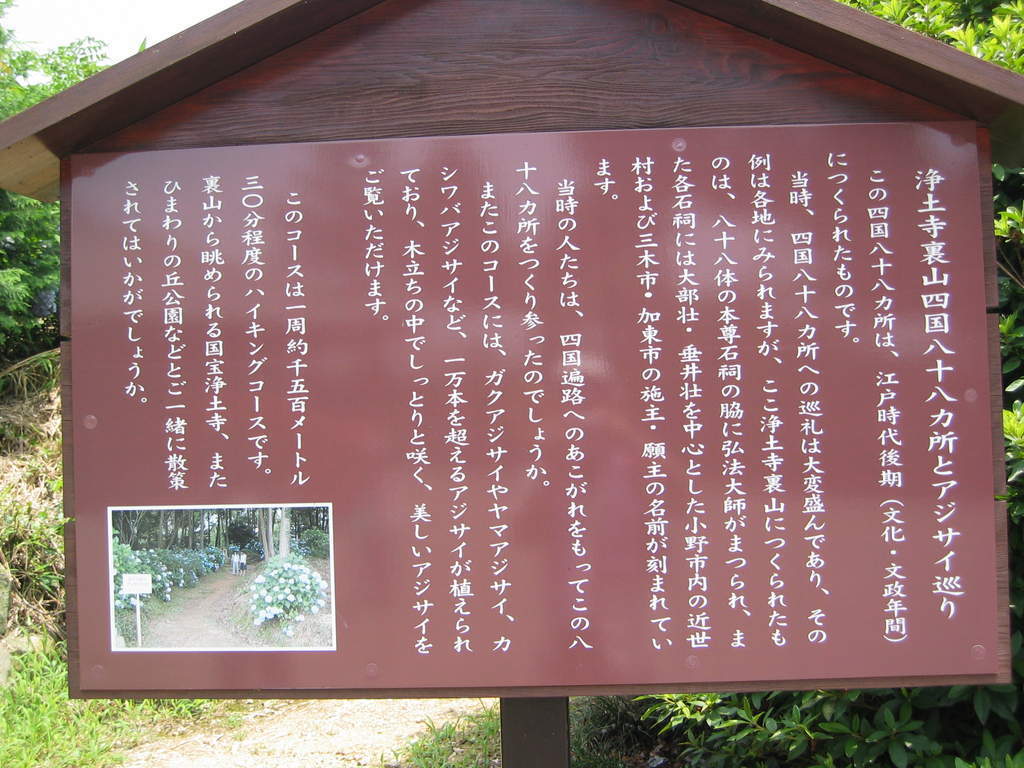 浄土寺裏山四国八十八カ所とアジサイ巡り
この四国八十八カ所は、江戸時代後期（文化・文政年間）
につくられたものです。
当時、四国八十八カ所への巡礼は大変盛んであり、その
例は各地にみられますが、ここ浄土寺裏山につくられたも
のは、八十八体の本尊石祠の脇に弘法大師がまつられ、ま
た各石祠には大部荘・垂井荘を中心とした小野市内の近世
村および三木市・加東市の施主・願主の名前が刻まれてい
ます。
当時の人たちは、四国遍路へのあこがれをもってこの八
十八カ所をつくり参ったのでしょうか。
またこのコースには、ガクアジサイやヤマアジサイ、カ
シワバアジサイなど、一万本を超えるアジサイが植えられ
ており、木立ちの中でしっとりと咲く、美しいアジサイを
ご覧いただけます。
このコースは一周約千五百メートル
三〇分程度のハイキングコースです。
裏山から眺められる国宝浄土寺、また
ひまわりの丘公園などとご一緒に散策
されてはいかがでしょうか。